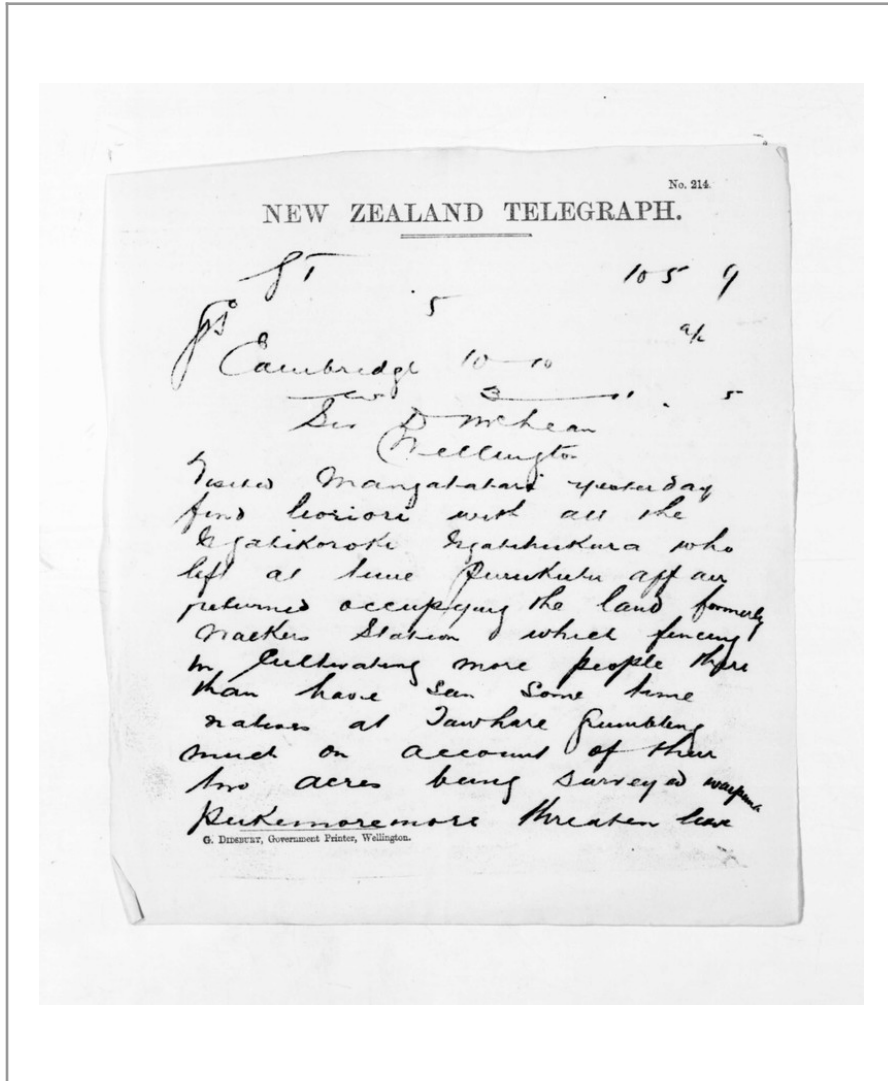 No. 214.
NEW ZEALAND TELEGRAPH.
105
5
Cambridge 10 10
5
Sir D McLean
Wellington
Visited Mangatatari yesterday
find horiori with all the
Ngatikoroki Ngatihukura who
left at time Purukutu affair
returned occupying the land formerly
Station which fencing
in Cultivating more people there
than have seen some time
natives at Tawhare Grumbling
much on account of their
two acres being surveyed
Pukemoremore threaten
G. DIDSBURY, Government Printer, Wellington.